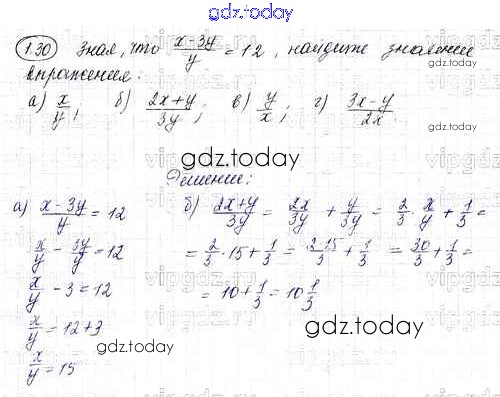 gdz.today
1.30 Зная, что (x-3y)/y = 12, найдите значение
выражения:
а) x/y; б) (2x+y)/3y; в) y/x; г) (3x-y)/2x.
gdz.today
Решение:
а) (x-3y)/y = 12
x/y - 3y/y = 12
x/y - 3 = 12
x/y = 12+3
x/y = 15
б) (2x+y)/3y = 2x/3y + y/3y = 2/3 · x/y + 1/3 =
= 2/3 · 15 + 1/3 = (2·15)/3 + 1/3 = 30/3 + 1/3 =
= 10 + 1/3 = 10 1/3
gdz.today
gdz.today